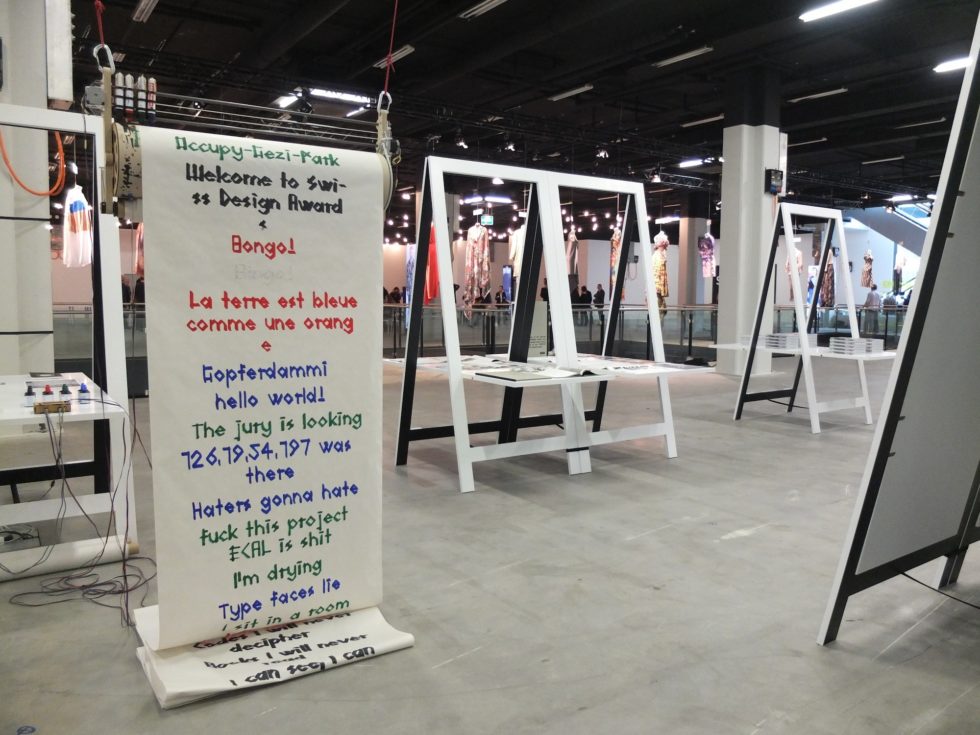 Occupy-Gezi-Park
Welcome to Swi-
ss Design Award
s
Bongo!
Bingo!
La terre est bleue
comme une orang
e
Gopferdammi
hello world!
The jury is looking
126,19,54,197 was
there
Haters gonna hate
fuck this project
ECAL is shit
I'm drying
Type faces lie
I sit in a room
Codes I will never
decipher
Books I will never
read
I can see, I can